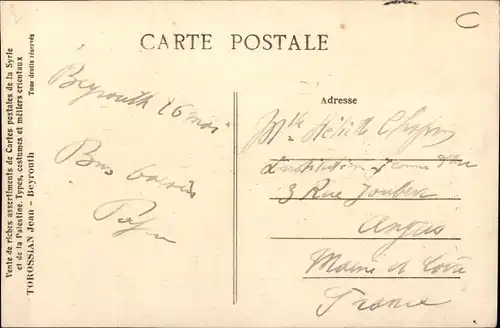 CARTE POSTALE
Vente de riches assortiments de Cartes postales de la Syrie
et de la Palestine. Types, costumes et métiers orientaux
TOROSSIAN Jean - Beyrouth Tous droits réservés
Beyrouth 26 mai
Bons baisers
Adresse
Mlle
Institution
3 Rue Joubert
Angers
Maine et Loire
France